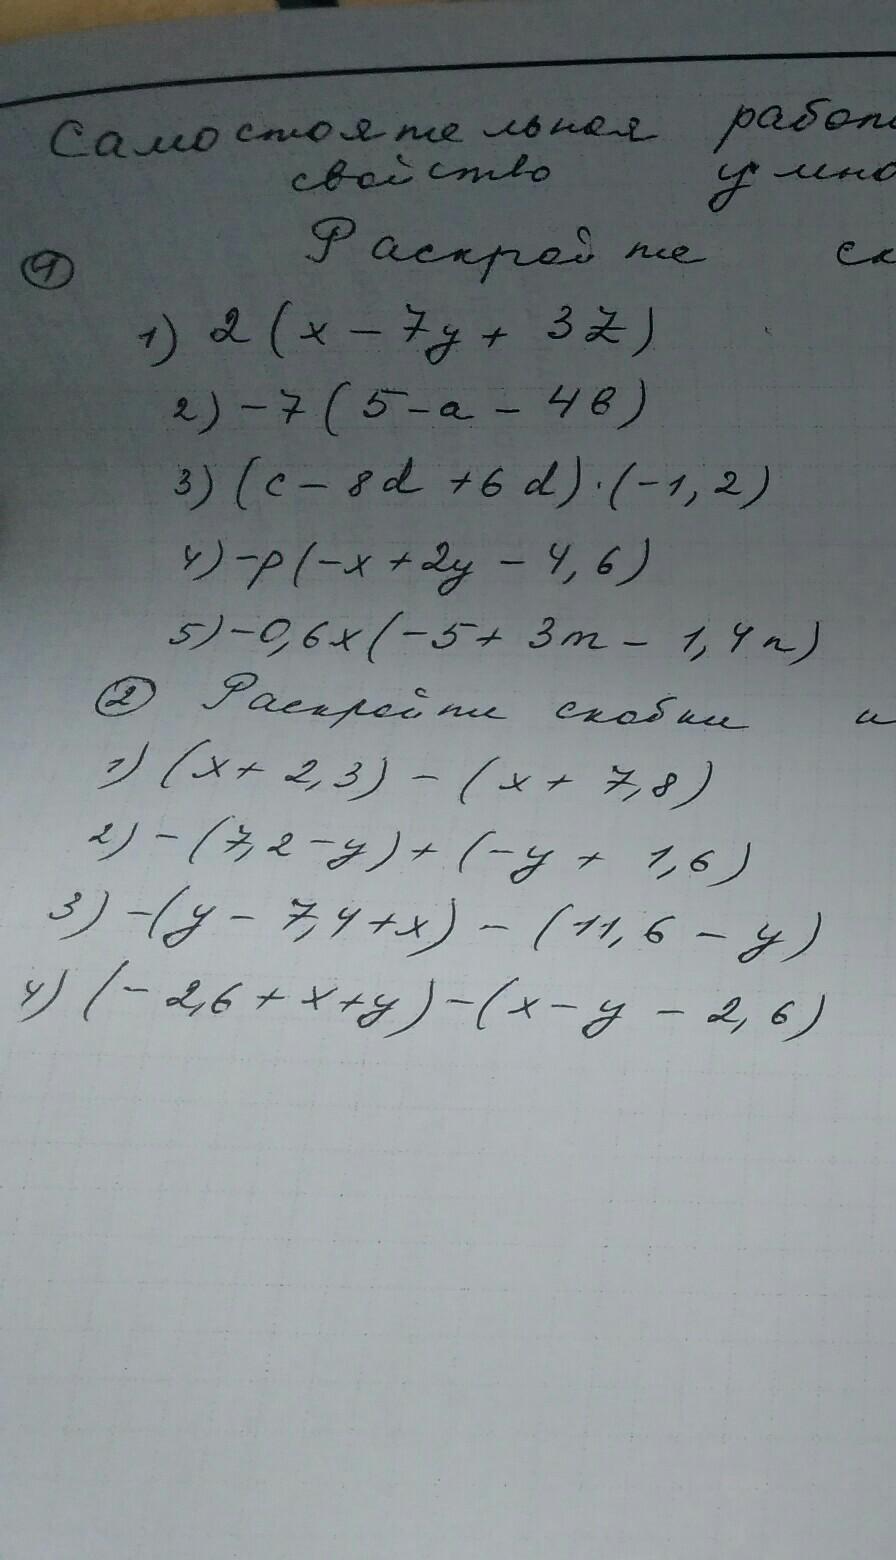 Самостоятельная работ
свойство умно
① Раскройте ск
1) 2(x - 7y + 3z)
2) -7(5 - a - 4в)
3) (c - 8d + 6d)·(-1,2)
4) -p(-x + 2y - 4,6)
5) -0,6x(-5 + 3m - 1,4n)
② Раскройте скобки и
1) (x + 2,3) - (x + 7,8)
2) -(7,2 - y) + (-y + 1,6)
3) -(y - 7,4 + x) - (11,6 - y)
4) (-2,6 + x + y) - (x - y - 2,6)